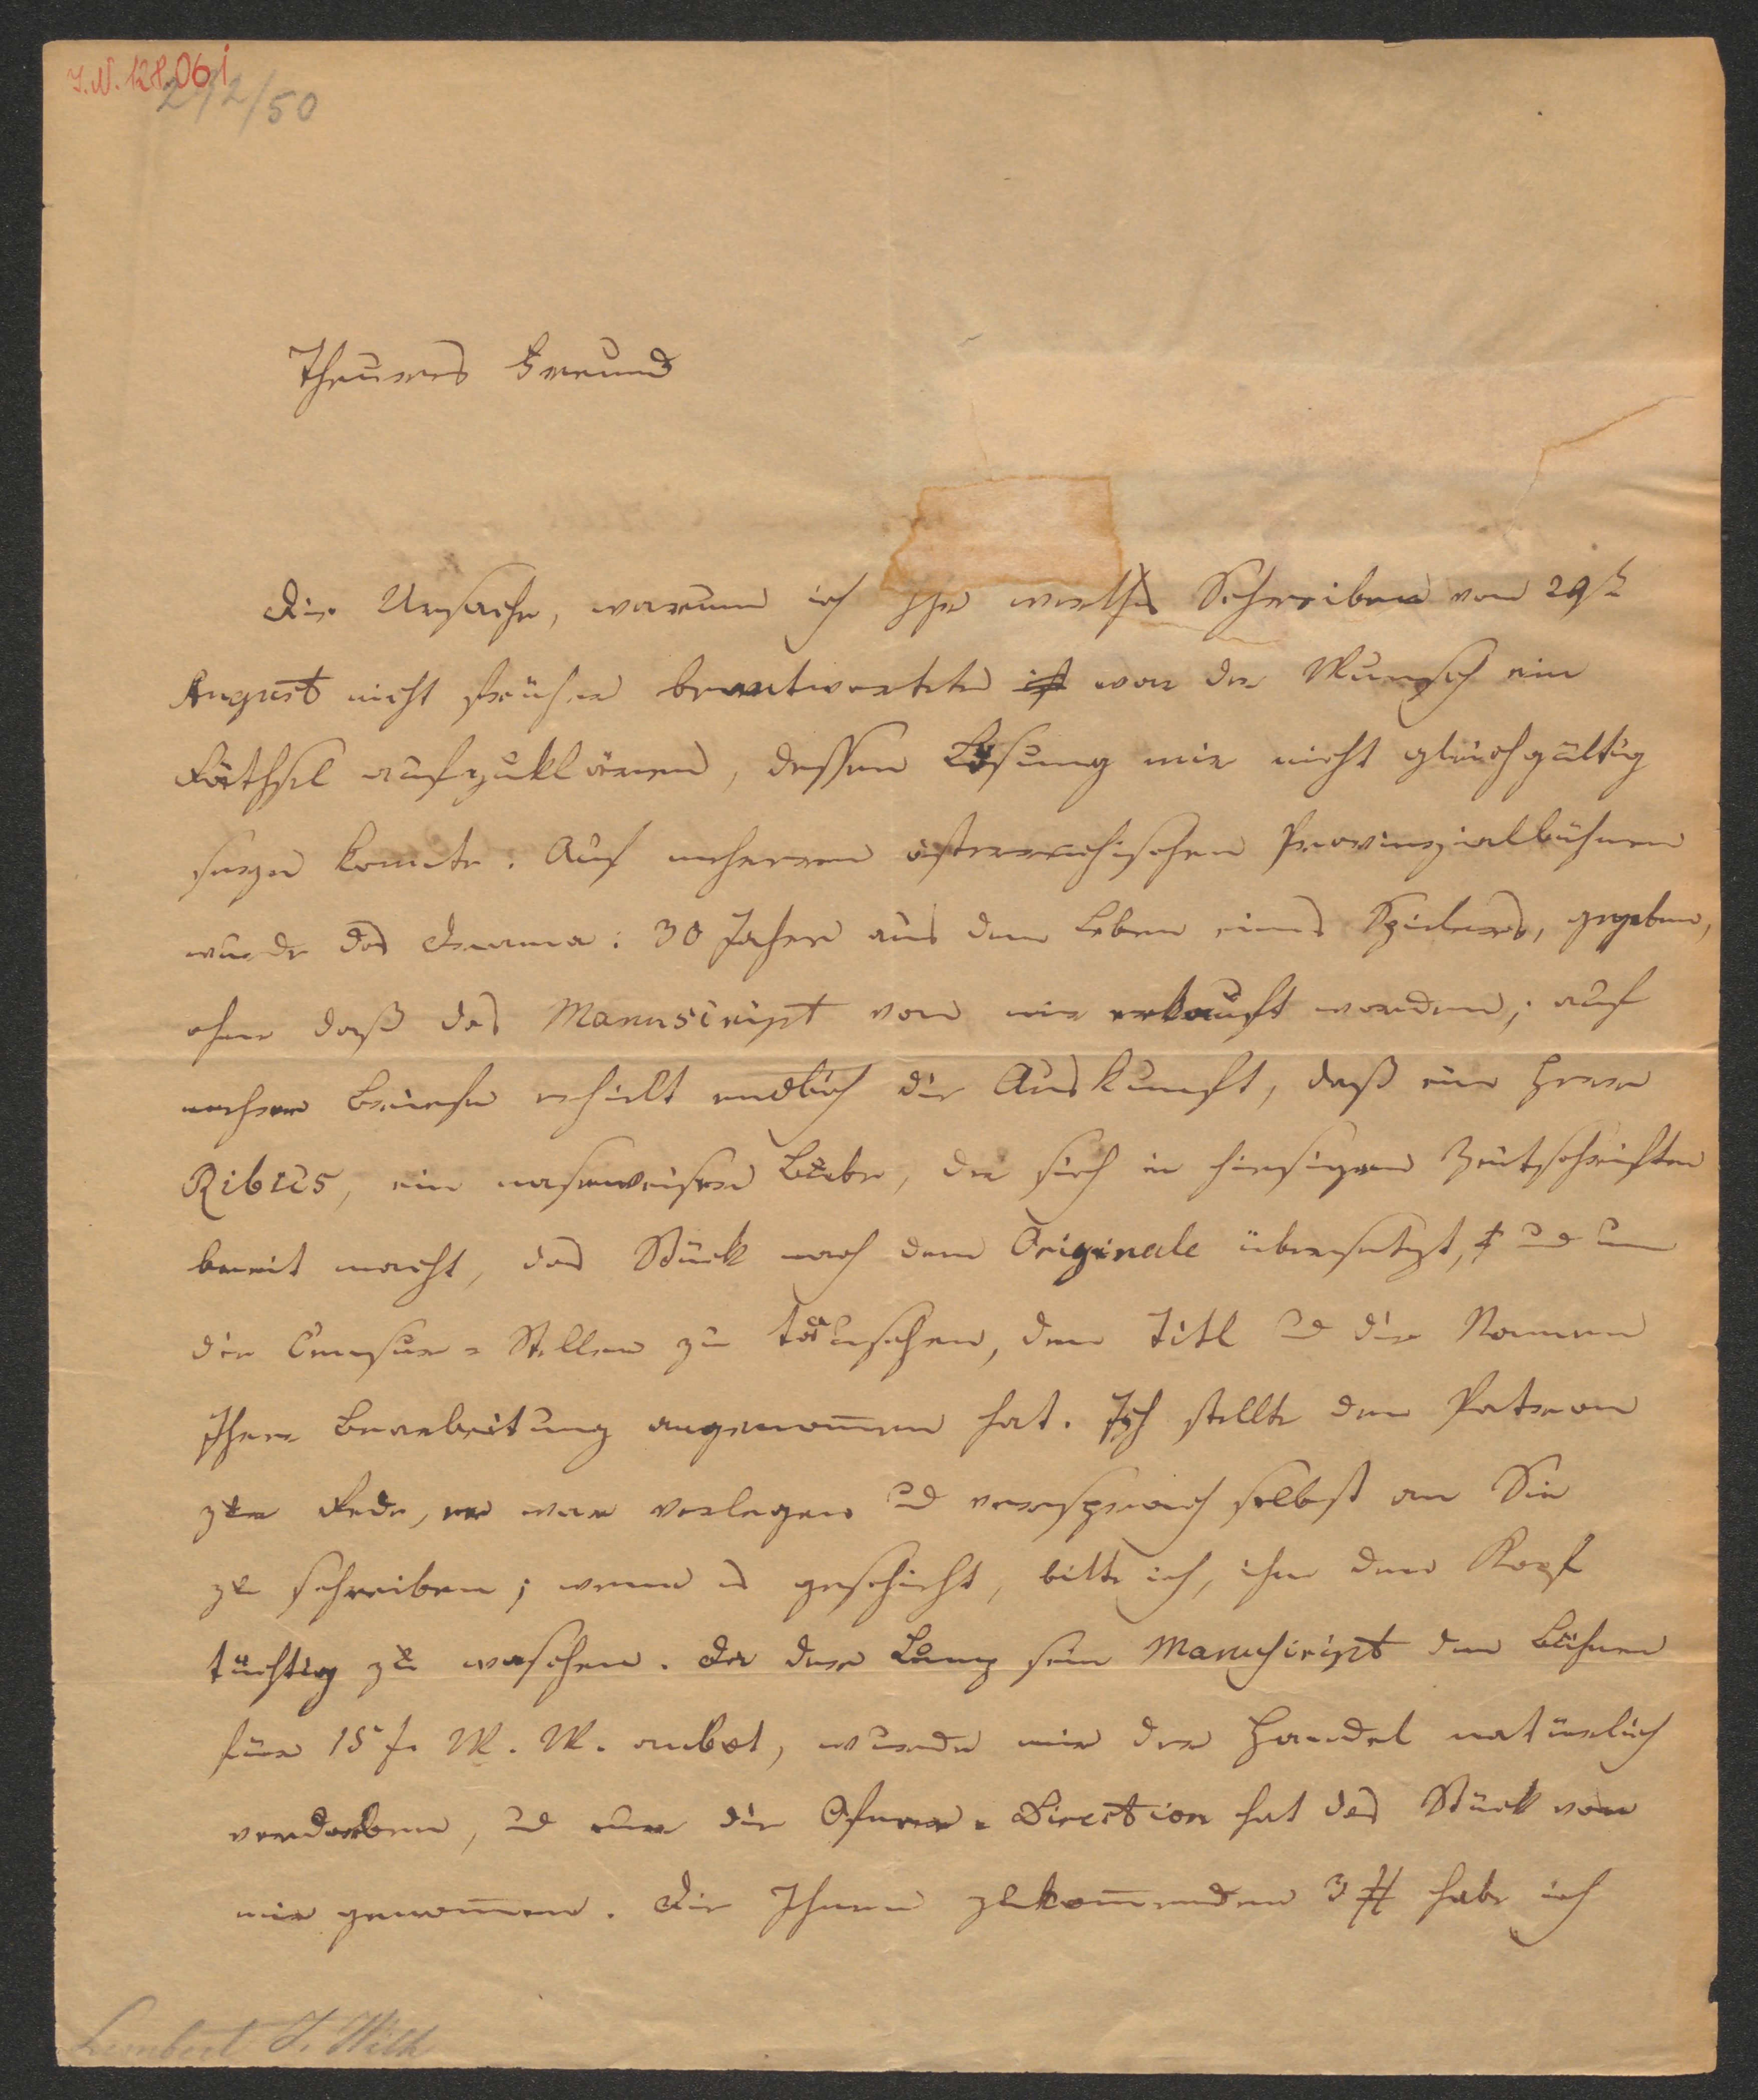 I.N. 128.061
212/50
Theurer Freund
Die Ursache, warum ich Ihr werthes Schreiben vom 29t
August nicht früher beantwortete ist war der Wunsch ein
Räthsel aufzuklären, dessen Lösung mir nicht gleichgültig
seyn konnte. Auf mehreren österreichischen Provinzialbühnen
wurde das Drama: 30 Jahre aus dem Leben eines Spielers, gegeben,
ohne daß das Manuscript von mir erkauft worden; auf
mehrere Briefe erhielt endlich die Auskunft, daß ein Herr
Ribics, ein naseweiser Bube, der sich in hiesigen Zeitschriften
breit macht, das Stück nach dem Originale übersetzt, und um
die Censur-Stellen zu täuschen, den Titl und die Namen
Ihrer Bearbeitung angenommen hat. Ich stellte den Patron
zur Rede, er war verlegen und versprach selbst an Sie
zu schreiben; wenn es geschieht, bitte ich, ihm den Kopf
tüchtig zu waschen. Da der Lump sein Manuscript den Bühnen
für 15 f. M. M. anbot, wurde mir der Handel natürlich
verdorben, und nur die Ofner-Direction hat das Stück von
mir genommen. Die Ihnen zukommenden 3 # habe ich
Lembert J. Wilh